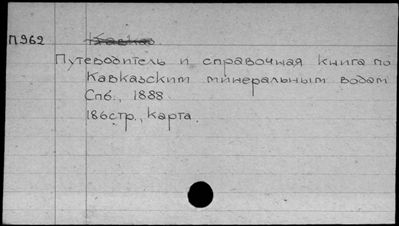 П962 Кавказ
Путеводитель и справочная книга по
Кавказским минеральным водам
Спб., 1888
186стр., карта.